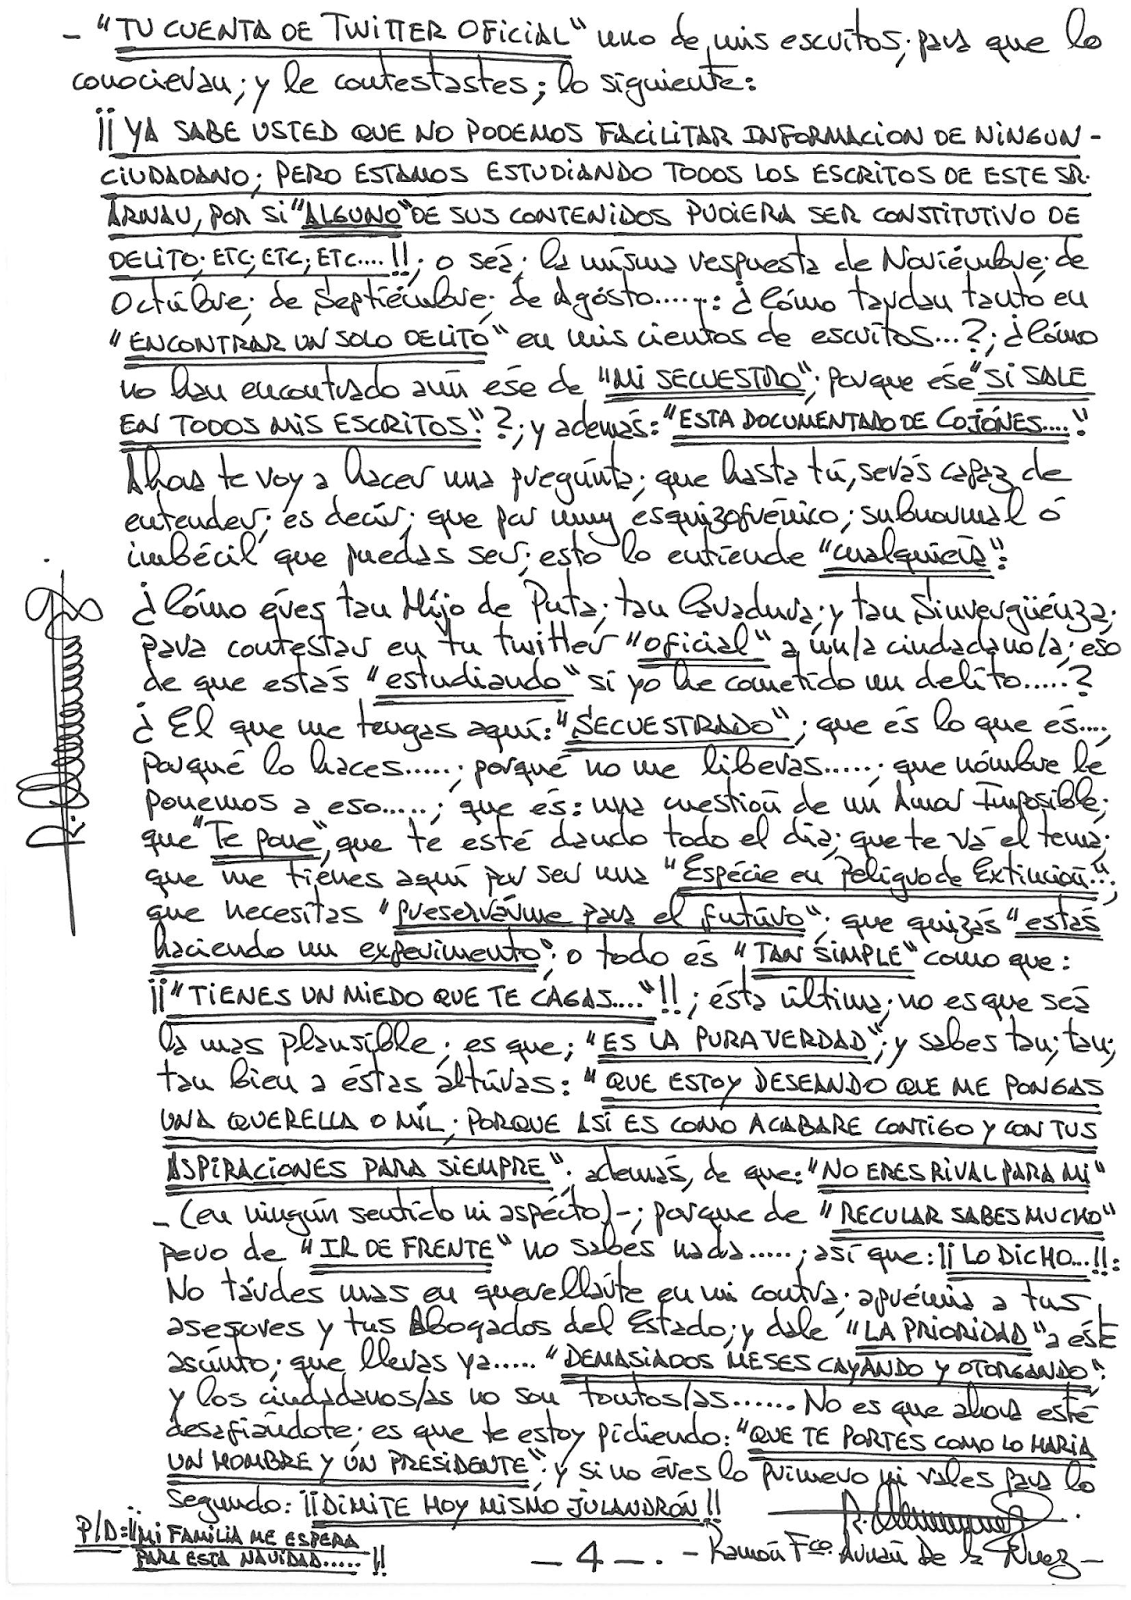 - "TU CUENTA DE TWITTER OFICIAL" uno de mis escritos; para que lo
conocieran; y le contestastes; lo siguiente:
¡¡ YA SABE USTED QUE NO PODEMOS FACILITAR INFORMACION DE NINGUN -
CIUDADANO; PERO ESTAMOS ESTUDIANDO TODOS LOS ESCRITOS DE ESTE SR.
ARNAU, POR SI "ALGUNO" DE SUS CONTENIDOS PUDIERA SER CONSTITUTIVO DE
DELITO; ETC; ETC; ETC.... !!; o seá; la misma respuesta de Noviémbre; de
Octúbre; de Septiémbre; de Agósto......: ¿Cómo tardan tanto en
"ENCONTRAR UN SOLO DELITO" en mis cientos de escritos...?; ¿Cómo
no han encontrado aún ese de "MI SECUESTRO"; porque ése "SI SALE
EN TODOS MIS ESCRITOS"?; y además: "ESTA DOCUMENTADO DE COJÓNES...."
Ahora te voy a hacer una pregúnta; que hasta tú, serás capaz de
entender; es decir; que por muy esquizofrénico; subnormal ó
imbécil que puedas ser; esto lo entiende "cualquiera":
¿Cómo éres tan Hijo de Puta; tan Caradura; y tan Sinvergüénza;
para contestar en tu twitter "oficial" a un/a ciudadano/a; eso
de que estás "estudiando" si yo he cometido un delito.....?
¿El que me tengas aquí: "SECUESTRADO"; que és lo que és....,
porqué lo haces.....; porqué no me liberas.....; que nómbre le
ponemos a eso.....; que és: una cuestión de un Amor Imposible;
que "Te pone", que te esté dando todo el dia; que te vá el tema;
que me tiénes aquí por ser una "Espécie en Peligro de Extinción";
que necesitas "preservárme para el futúro"; que quizás "estás
haciendo un experimento"; o todo és "TAN SIMPLE" como que:
¡¡"TIENES UN MIEDO QUE TE CAGAS...."!!; ésta última; no es que seá
la mas plausíble; es que; "ES LA PURA VERDAD"; y sabes tan; tan;
tan bien a éstas áltúras: "QUE ESTOY DESEANDO QUE ME PONGAS
UNA QUERELLA O MÍL; PORQUE ASI ES COMO ACABARE CONTIGO Y CON TUS
ASPIRACIONES PARA SIEMPRE"; además, de que: "NO ERES RIVAL PARA MI"
- (en ningún sentido ni aspécto) -; porque de "RECULAR SABES MUCHO"
pero de "IR DE FRENTE" no sabes nada.....; así que: ¡¡LO DICHO...!!:
No tárdes mas en querellárte en mi contra; aprémia a tus
asesores y tus Abogados del Estado; y dale "LA PRIORIDAD" a éste
asúnto; que llevas ya..... "DEMASIADOS MESES CAYANDO Y OTORGANDO":
y los ciudadanos/as no son tontos/as...... No es que ahora esté
desafiándote; es que te estoy pidiendo: "QUE TE PORTES COMO LO HARIA
UN HOMBRE Y ÚN PRESIDENTE"; y si no éres lo primero ni vales para lo
segundo: ¡¡DIMITE HOY MISMO JULANDRÓN!!
P/D=¡¡MI FAMILIA ME ESPERA
PARA ESTA NAVIDAD.....!!
- 4 -. - Ramón Fco. Arnau De la Nuez -